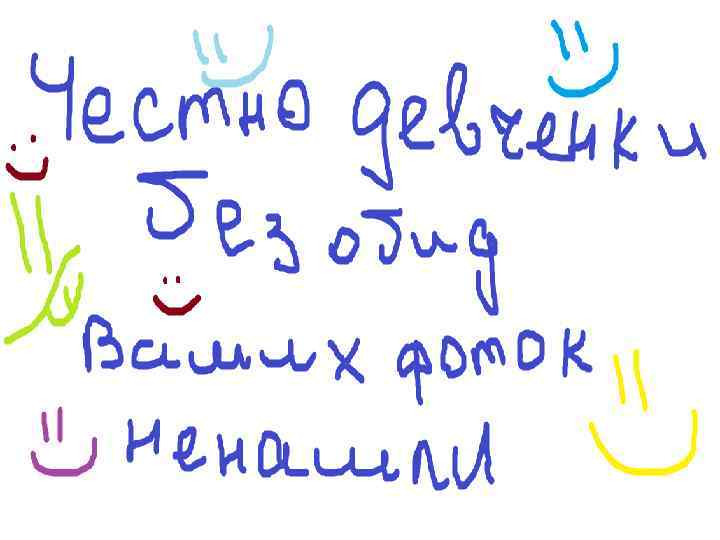 Честно девченки
без обид
Ваших фоток
ненашли